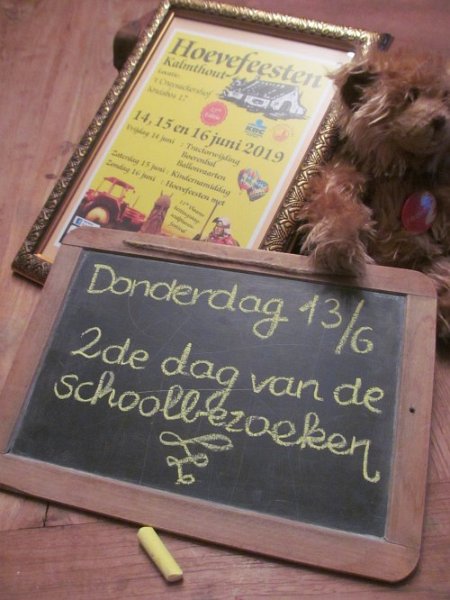 Hoevefeesten
Kalmthout
Locatie:
14, 15 en 16 juni 2019
Vrijdag 14 juni : Tractorwijding
Boerenbal
Ballonvaarten
Zaterdag 15 juni : Kindernamiddag
Zondag 16 juni : Hoevefeesten met
KBC
Donderdag 13/6
2de dag van de
schoolbezoeken